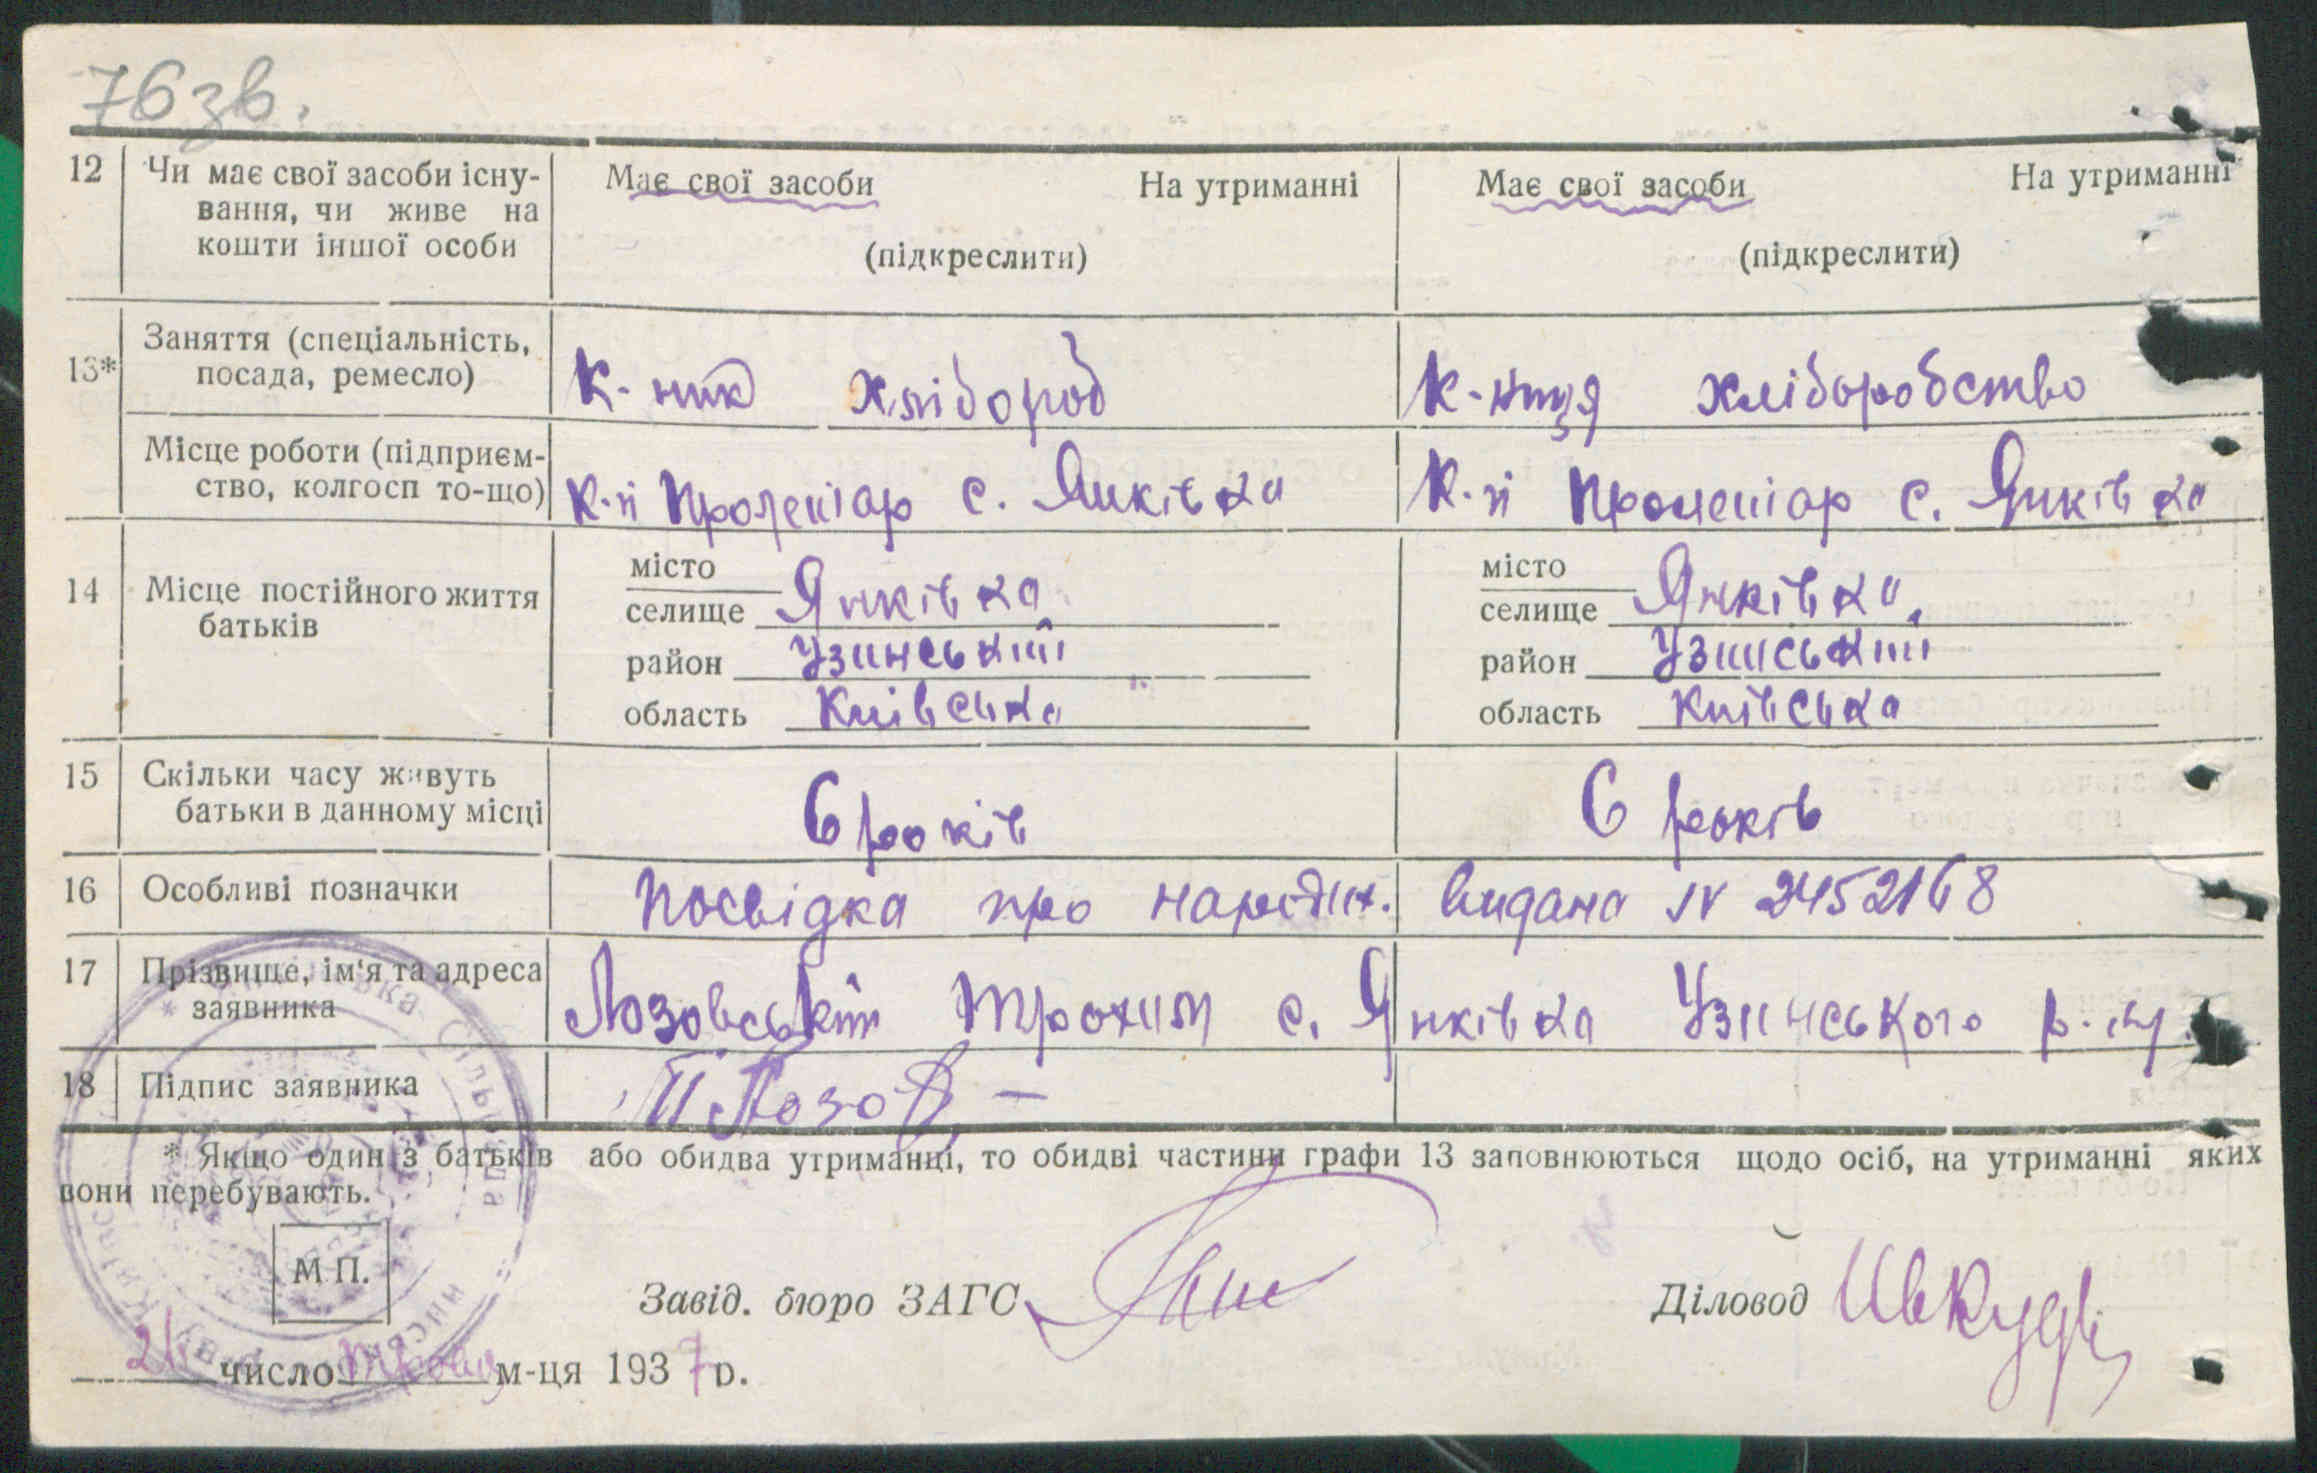 76 зв.
12 Чи має свої засоби існу- Має свої засоби На утриманні Має свої засоби На утриманні
вання, чи живе на
кошти іншої особи (підкреслити) (підкреслити)
13* Заняття (спеціальність,
посада, ремесло) К-ник хлібороб К-ниця хліборобство
Місце роботи (підприєм-
ство, колгосп то-що) К-п Пролетіар с. Янківка К-п Пролетіар с. Янківка
місто місто
14 Місце постійного життя селище Янківка селище Янківка
батьків
район Узинський район Узинський
область Київська область Київська
15 Скільки часу живуть
батьки в данному місці 6 років 6 років
16 Особливі позначки Посвідка про народж. видана
17 Прізвище, ім'я та адреса
заявника Лозовський Трохим с. Янківка Узинського р-ну
18 Підпис заявника
* Якщо один із батьків або обидва утриманці, то обидві частини графи 13 заповнюються щодо осіб, на утриманні яких
вони перебувають.
М П.
Завід. бюро ЗАГС Діловод
21 число м-ця 1937 р.